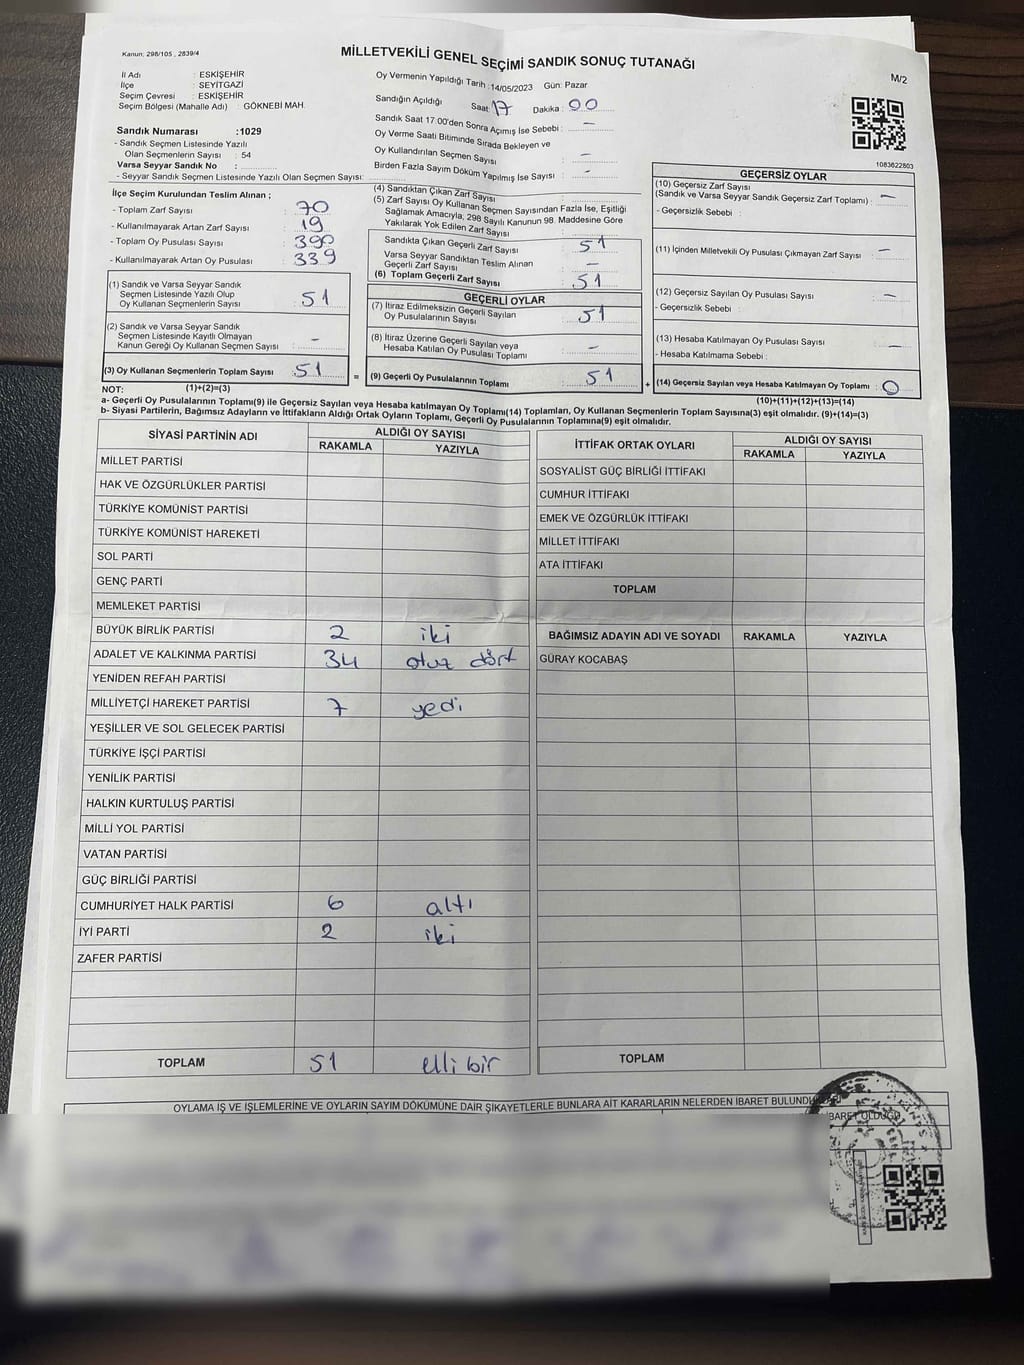 Kanun: 298/105 , 2839/4
MİLLETVEKİLİ GENEL SEÇİMİ SANDIK SONUÇ TUTANAĞI
M/2
İl Adı : ESKİŞEHİR
İlçe : SEYİTGAZİ
Seçim Çevresi : ESKİŞEHİR
Seçim Bölgesi (Mahalle Adı) : GÖKNEBİ MAH.
Sandık Numarası :1029
- Sandık Seçmen Listesinde Yazılı
Olan Seçmenlerin Sayısı : 54
Varsa Seyyar Sandık No :
- Seyyar Sandık Seçmen Listesinde Yazılı Olan Seçmen Sayısı:
Oy Vermenin Yapıldığı Tarih :14/05/2023 Gün: Pazar
Sandığın Açıldığı Saat: 17 Dakika : 00
Sandık Saat 17:00'den Sonra Açımış İse Sebebi : –
Oy Verme Saati Bitiminde Sırada Bekleyen ve
Oy Kullandırılan Seçmen Sayısı : –
Birden Fazla Sayım Döküm Yapılmış İse Sayısı : –
1083622803
İlçe Seçim Kurulundan Teslim Alınan ;
- Toplam Zarf Sayısı : 70
- Kullanılmayarak Artan Zarf Sayısı : 19
- Toplam Oy Pusulası Sayısı : 390
- Kullanılmayarak Artan Oy Pusulası : 339
(1) Sandık ve Varsa Seyyar Sandık
Seçmen Listesinde Yazılı Olup
Oy Kullanan Seçmenlerin Sayısı : 51
(2) Sandık ve Varsa Seyyar Sandık
Seçmen Listesinde Kayıtlı Olmayan
Kanun Gereği Oy Kullanan Seçmen Sayısı : –
(3) Oy Kullanan Seçmenlerin Toplam Sayısı : 51
(4) Sandıktan Çıkan Zarf Sayısı :
(5) Zarf Sayısı Oy Kullanan Seçmen Sayısından Fazla İse, Eşitliği
Sağlamak Amacıyla, 298 Sayılı Kanunun 98. Maddesine Göre
Yakılarak Yok Edilen Zarf Sayısı :
Sandıkta Çıkan Geçerli Zarf Sayısı : 51
Varsa Seyyar Sandıktan Teslim Alınan
Geçerli Zarf Sayısı : –
(6) Toplam Geçerli Zarf Sayısı : 51
GEÇERLİ OYLAR
(7) İtiraz Edilmeksizin Geçerli Sayılan
Oy Pusulalarının Sayısı : 51
(8) İtiraz Üzerine Geçerli Sayılan veya
Hesaba Katılan Oy Pusulası Toplamı : –
= (9) Geçerli Oy Pusulalarının Toplamı : 51
GEÇERSİZ OYLAR
(10) Geçersiz Zarf Sayısı
(Sandık ve Varsa Seyyar Sandık Geçersiz Zarf Toplamı) : –
- Geçersizlik Sebebi :
(11) İçinden Milletvekili Oy Pusulası Çıkmayan Zarf Sayısı : –
(12) Geçersiz Sayılan Oy Pusulası Sayısı : –
- Geçersizlik Sebebi :
(13) Hesaba Katılmayan Oy Pusulası Sayısı : –
- Hesaba Katılmama Sebebi :
+ (14) Geçersiz Sayılan veya Hesaba Katılmayan Oy Toplamı : 0
NOT: (1)+(2)=(3)
(10)+(11)+(12)+(13)=(14)
a- Geçerli Oy Pusulalarının Toplamı(9) ile Geçersiz Sayılan veya Hesaba katılmayan Oy Toplamı(14) Toplamları, Oy Kullanan Seçmenlerin Toplam Sayısına(3) eşit olmalıdır. (9)+(14)=(3)
b- Siyasi Partilerin, Bağımsız Adayların ve İttifakların Aldığı Ortak Oyların Toplamı, Geçerli Oy Pusulalarının Toplamına(9) eşit olmalıdır.
SİYASİ PARTİNİN ADI ALDIĞI OY SAYISI
RAKAMLA YAZIYLA
MİLLET PARTİSİ
HAK VE ÖZGÜRLÜKLER PARTİSİ
TÜRKİYE KOMÜNİST PARTİSİ
TÜRKİYE KOMÜNİST HAREKETİ
SOL PARTİ
GENÇ PARTİ
MEMLEKET PARTİSİ
BÜYÜK BİRLİK PARTİSİ 2 iki
ADALET VE KALKINMA PARTİSİ 34 otuz dört
YENİDEN REFAH PARTİSİ
MİLLİYETÇİ HAREKET PARTİSİ 7 yedi
YEŞİLLER VE SOL GELECEK PARTİSİ
TÜRKİYE İŞÇİ PARTİSİ
YENİLİK PARTİSİ
HALKIN KURTULUŞ PARTİSİ
MİLLİ YOL PARTİSİ
VATAN PARTİSİ
GÜÇ BİRLİĞİ PARTİSİ
CUMHURİYET HALK PARTİSİ 6 altı
İYİ PARTİ 2 iki
ZAFER PARTİSİ
TOPLAM 51 elli bir
İTTİFAK ORTAK OYLARI ALDIĞI OY SAYISI
RAKAMLA YAZIYLA
SOSYALİST GÜÇ BİRLİĞİ İTTİFAKI
CUMHUR İTTİFAKI
EMEK VE ÖZGÜRLÜK İTTİFAKI
MİLLET İTTİFAKI
ATA İTTİFAKI
TOPLAM
BAĞIMSIZ ADAYIN ADI VE SOYADI RAKAMLA YAZIYLA
GÜRAY KOCABAŞ
TOPLAM
OYLAMA İŞ VE İŞLEMLERİNE VE OYLARIN SAYIM DÖKÜMÜNE DAİR ŞİKAYETLERLE BUNLARA AİT KARARLARIN NELERDEN İBARET
OLDUĞU